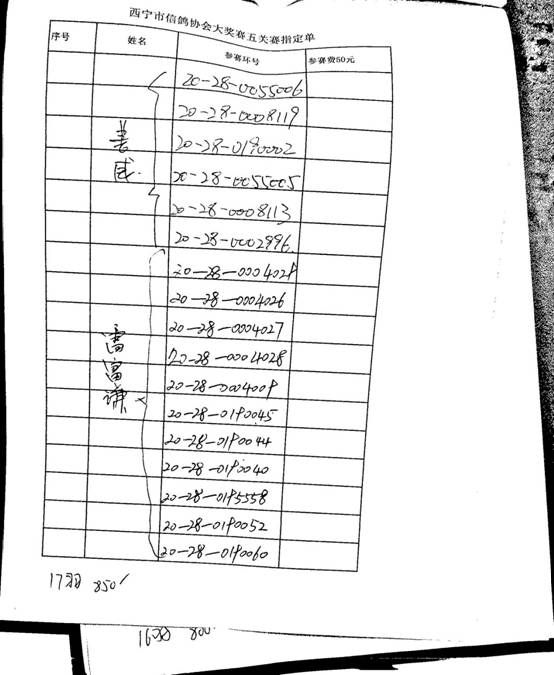 西宁市信鸽协会大奖赛五关赛指定单
序号 姓名 参赛环号 参赛费50元
20-28-0055006
20-28-0008119
20-28-0190002
20-28-0055005
20-28-0008113
20-28-0002996
20-28-0004029
20-28-0004026
20-28-0004027
雷富谦 20-28-0004028
20-28-0004009
20-28-0190045
20-28-0190044
20-28-0190040
20-28-0195558
20-28-0190052
20-28-0190060
17羽 850/
16羽 800